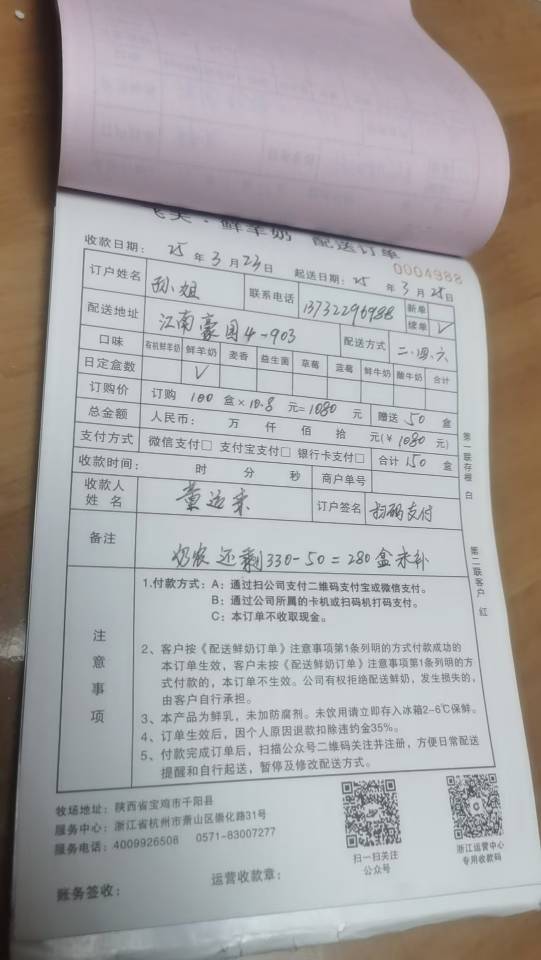 飞天·鲜羊奶 配送订单
0004988
收款日期：25年3月23日 起送日期：25年3月25日
订户姓名 孙姐 联系电话 13732296988 新单
续单 ✓
配送地址 江南豪园4-903 配送方式 二.四.六
口味 有机鲜羊奶 鲜羊奶 麦香 益生菌 草莓 蓝莓 鲜牛奶 酸牛奶 合计
日定盒数 ✓
订购价 订购 100 盒×10.8元=1080元 赠送 50 盒
总金额 人民币： 万 仟 佰 拾 元(¥1080元)
支付方式 微信支付□ 支付宝支付□ 银行卡支付□ 合计 150 盒
收款时间： 时 分 秒 商户单号
收款人姓名 董运来 订户签名 扫码支付
备注 奶农还剩330-50=280盒未补
第一联存根 白
第二联客户 红
注意事项
1.付款方式：A：通过扫公司支付二维码支付宝或微信支付。
B：通过公司所属的卡机或扫码机打码支付。
C：本订单不收取现金。
2、客户按《配送鲜奶订单》注意事项第1条列明的方式付款成功的
本订单生效，客户未按《配送鲜奶订单》注意事项第1条列明的方
式付款的，本订单不生效。公司有权拒绝配送鲜奶，发生损失的，
由客户自行承担。
3、本产品为鲜乳，未加防腐剂。未饮用请立即存入冰箱2-6℃保鲜。
4、订单生效后，因个人原因退款扣除违约金35%。
5、付款完成订单后，扫描公众号二维码关注并注册，方便日常配送
提醒和自行起送，暂停及修改配送方式。
牧场地址：陕西省宝鸡市千阳县
服务中心：浙江省杭州市萧山区崇化路31号
服务电话：4009926506 0571-83007277
扫一扫关注
公众号
浙江运营中心
专用收款码
账务签收： 运营收款章：